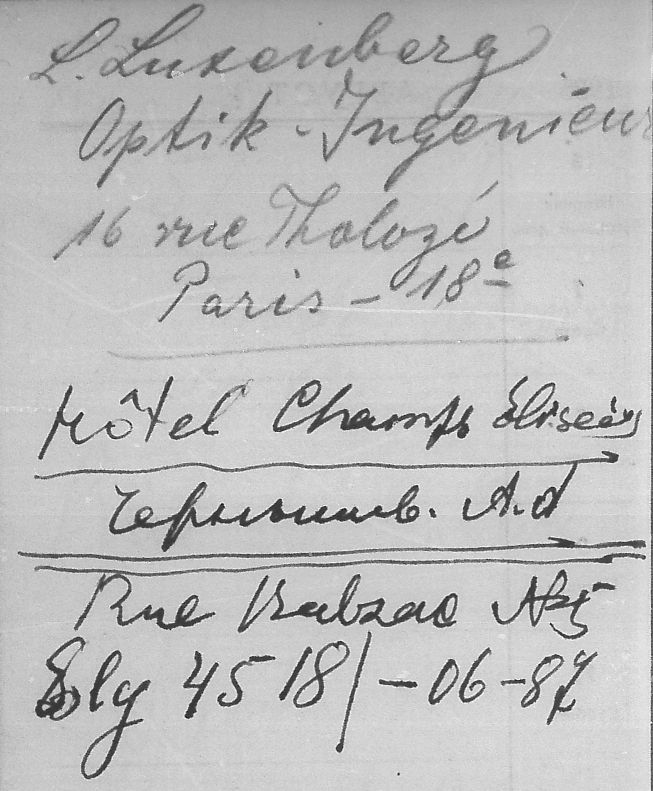 L. Luxenberg
Optik-Ingenieur
16 rue Tholozé
Paris - 18e
Hôtel Champs éliseés
А.d
Rue Balzac №5
Ely 4518/-06-87